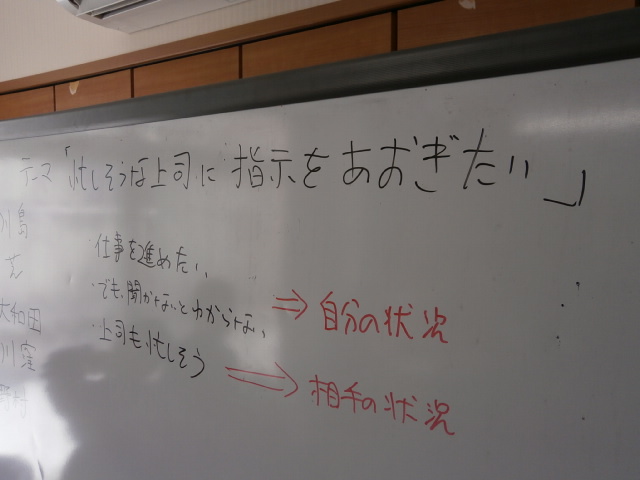 テーマ「忙しそうな上司に指示をあおぎたい」
川島
大和田
川窪
・仕事を進めたい、
・でも、聞かないとわからない、
・上司も忙しそう
⇒ 自分の状況
⇒ 相手の状況